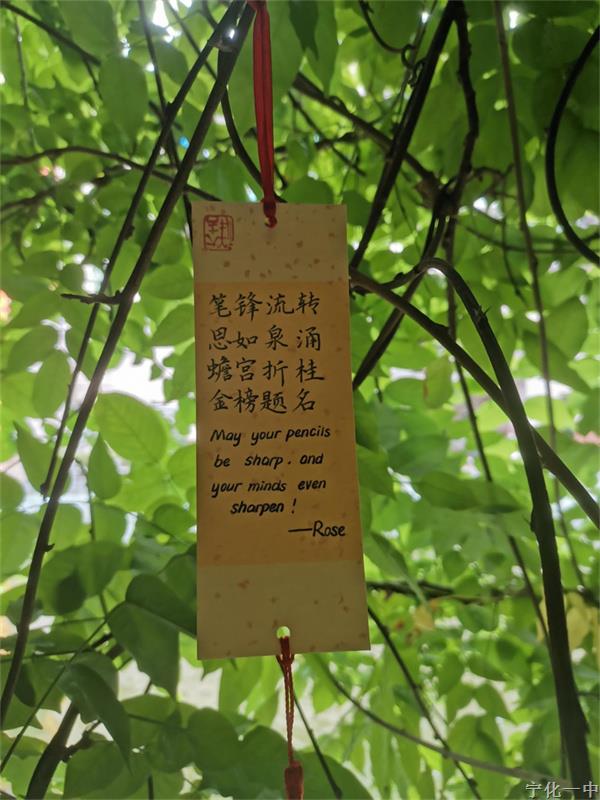 笔锋流转
思如泉涌
蟾宫折桂
金榜题名
May your pencils
be sharp, and
your minds even
sharpen!
—Rose
宁化一中